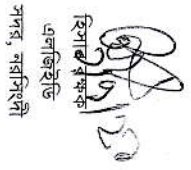 হিসাব রক্ষক
এলজিইডি
সদর, নরসিংদী